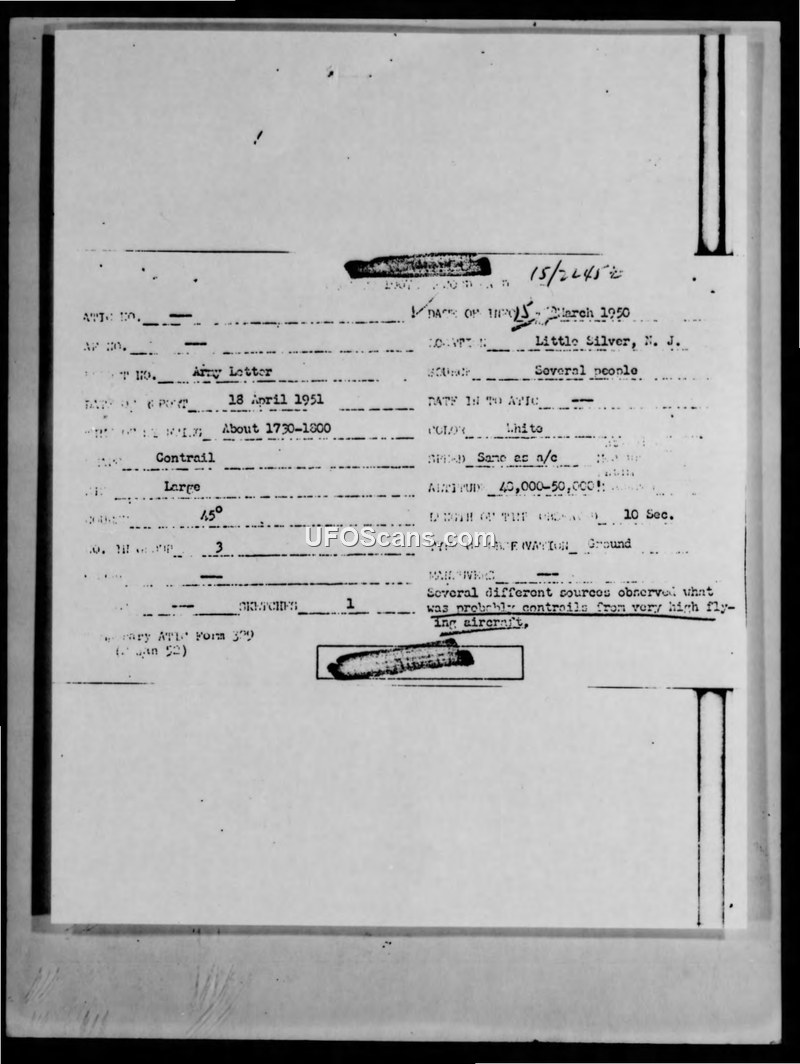 15/2245Z
ATIC NO. —
DATE OF INFO 15 March 1950
AF NO. —
LOCATION Little Silver, N. J.
REPORT NO. Army Letter
SOURCE Several people
DATE OF REPORT 18 April 1951
DATE IN TO ATIC —
TIME OF SIGHTING About 1730-1800
COLOR White
Contrail
SPEED Same as a/c
Large
ALTITUDE 40,000-50,000'
45°
LENGTH OF TIME OBSERVED 10 Sec.
UFOScans.com
NO. IN GROUP 3
TYPE OF OBSERVATION Ground
—
MANEUVERS —
— SKETCHES 1
Several different sources observed what
was probably contrails from very high fly-
ing aircraft.
Temporary ATIC Form 329
(2 Jan 52)